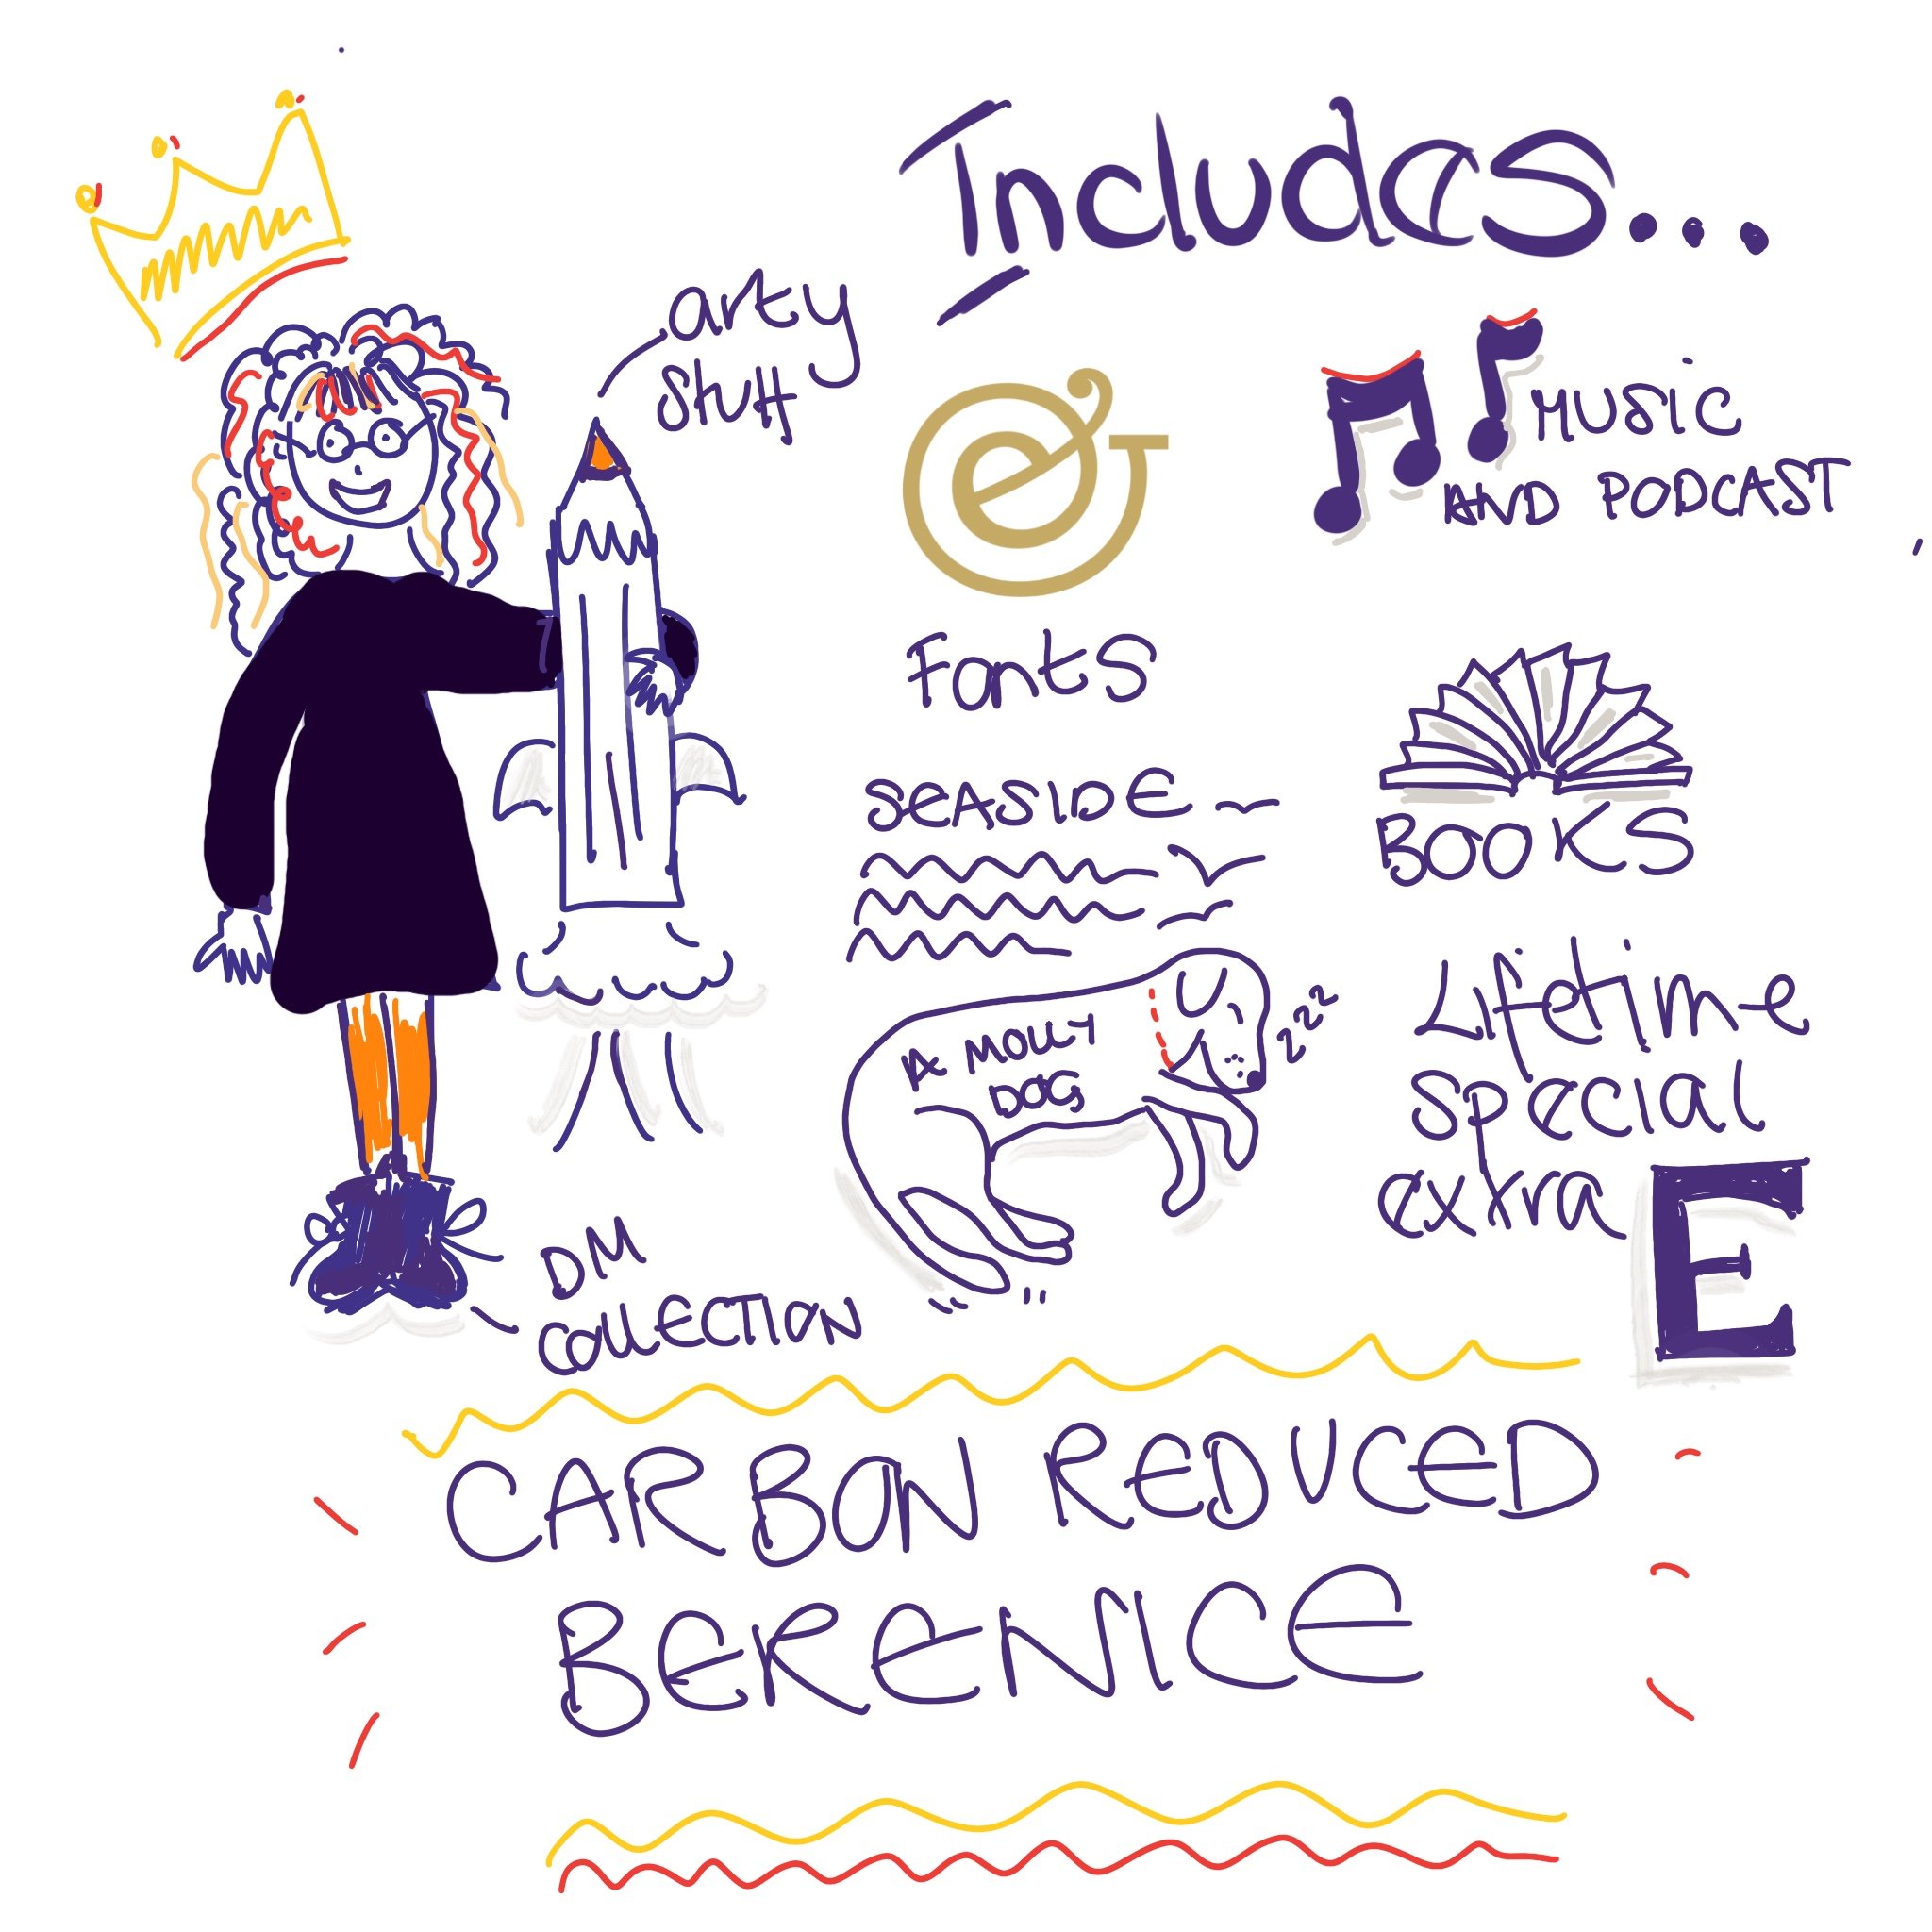 Includes...
arty
stuff
&
Fonts
MUSIC
AND PODCAST
SEASIDE
BOOKS
A MOLLY
DOG
zzz
Lifetime
special
extra
E
DM
COLLECTION
CARBON REDUCED
BERENICE